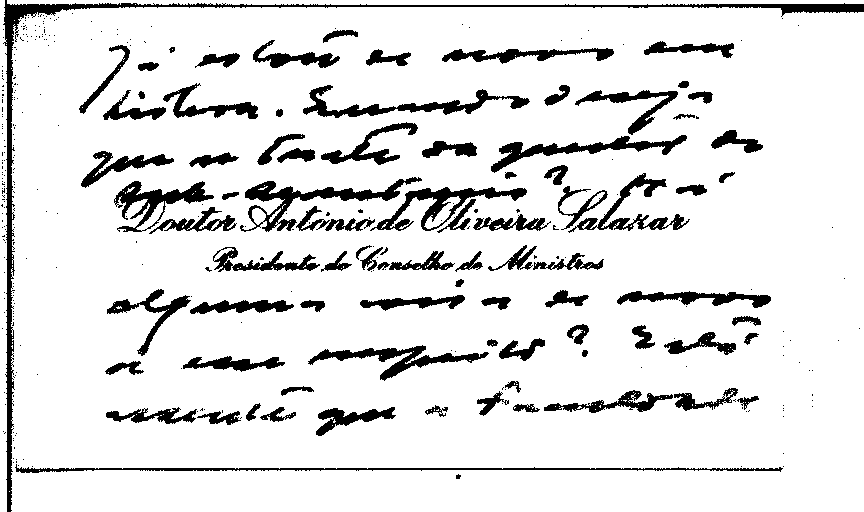 Já estou de novo em
Lisboa. Quando deseja
que se trate da questão do
Doutor António de Oliveira Salazar
Presidente do Conselho de Ministros
alguma coisa de novo
a esse respeito? Está
que a Faculdade